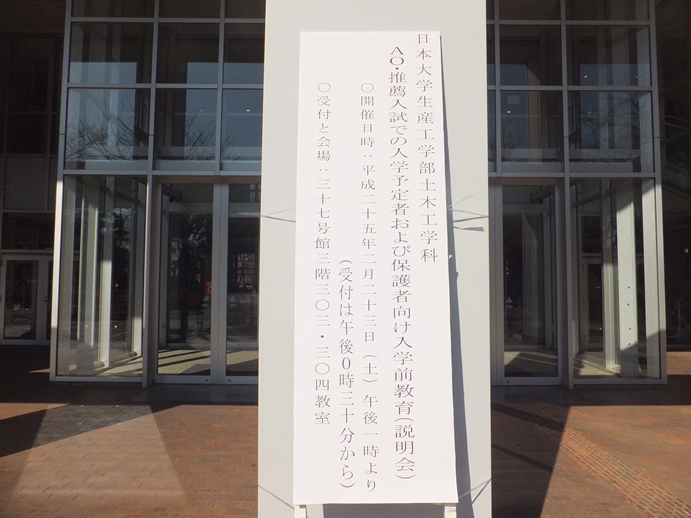 日本大学生産工学部土木工学科
AO・推薦入試での入学予定者および保護者向け入学前教育(説明会)
〇開催日時:平成二十五年二月二十三日(土)午後一時より
(受付は午後0時三十分から)
〇受付と会場:三十七号館三階三〇三・三〇四教室